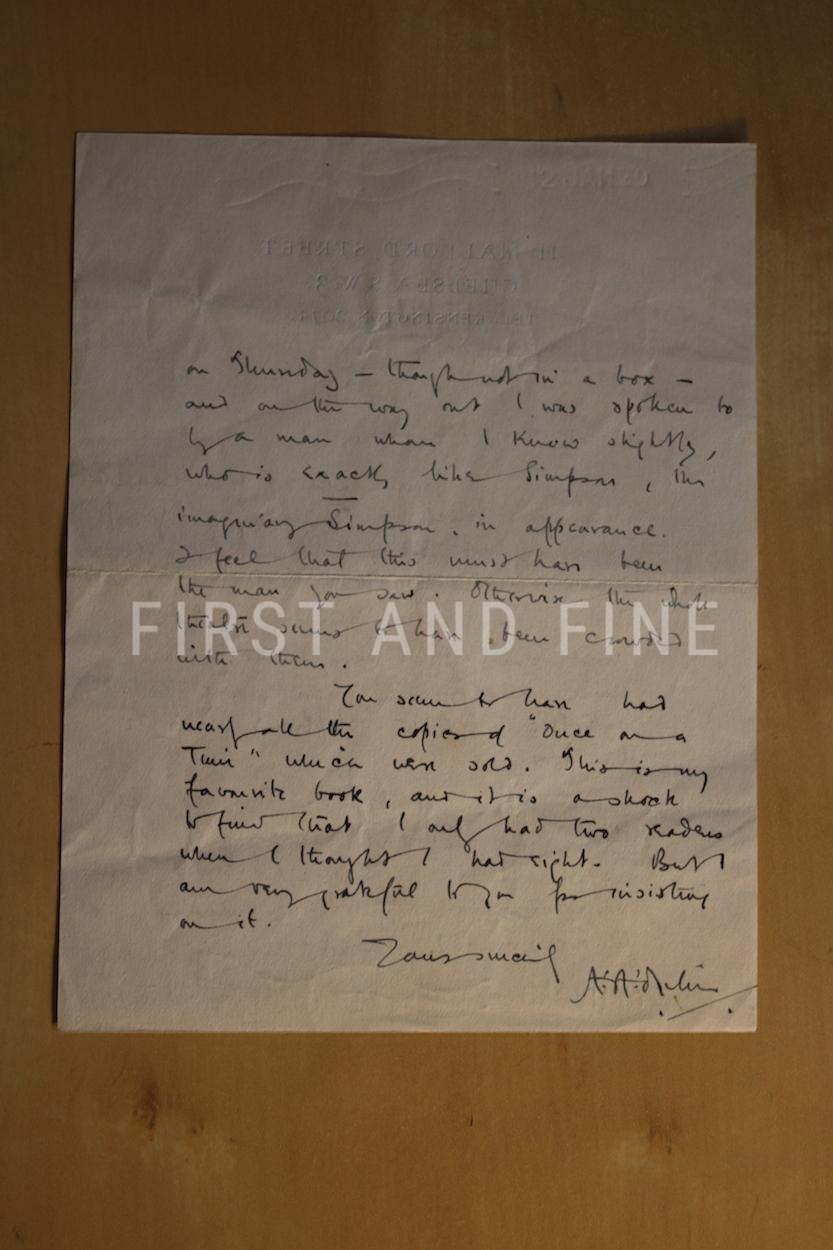 11 MALLORD STREET
CHELSEA S.W.3.
TEL. KENSINGTON 2074
on Thursday – though not in a box –
and on the way out I was spoken to
by a man whom I know slightly,
who is exactly like Simpson, the
imaginary Simpson, in appearance.
I feel that this must have been
the man you saw. Otherwise the whole
theatre seems to have been crowded
with them.
You seem to have had
nearly all the copies of "Once on a
Time" which were sold. This is my
favourite book, and it is a shock
to find that I only had two readers
when I thought I had eight. But I
am very grateful to you for insisting
on it.
Yours sincerely
A. A. Milne
FIRST AND FINE